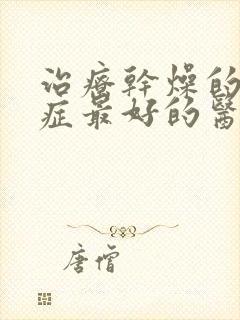 治療幹燥的
症最好的醫
唐僧